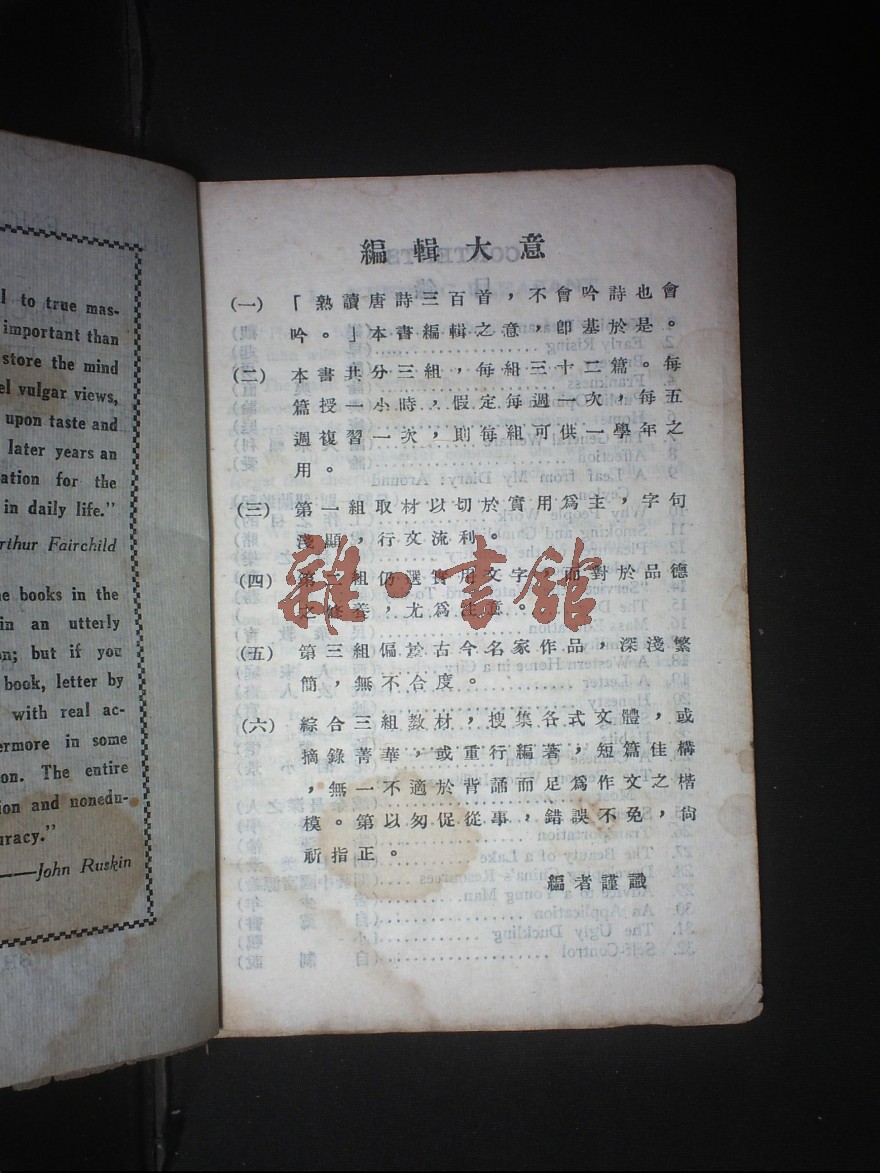 l to true mas-
important than
store the mind
el vulgar views,
upon taste and
later years an
ation for the
in daily life."
rthur Fairchild
e books in the
in an utterly
on; but if you
book, letter by
with real ac-
ermore in some
on. The entire
ion and nonedu-
uracy."
——John Ruskin
編輯大意
(一) 「熟讀唐詩三百首，不會吟詩也會
吟。」本書編輯之意，卽基於是。
(二) 本書共分三組，每組三十二篇。每
篇授一小時，假定每週一次，每五
週複習一次，則每組可供一學年之
用。
(三) 第一組取材以切於實用爲主，字句
淺顯，行文流利。
(四) 第二組仍選實用文字，而對於品德
之修養，尤爲注意。
(五) 第三組偏於古今名家作品，深淺繁
簡，無不合度。
(六) 綜合三組教材，搜集各式文體，或
摘錄菁華，或重行編著，短篇佳構
，無一不適於背誦而足爲作文之楷
模。第以匆促從事，錯誤不免，尙
祈指正。
編者謹識
雜·書館